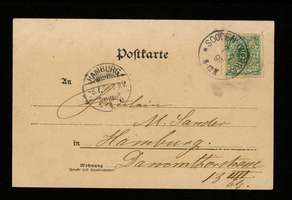 Postkarte
SOODEN
HAMBURG
An
Fräulein
M. Sander
in Hamburg.
Dammthorstrasse
Wohnung
(Straße und Hausnummer)
13 III